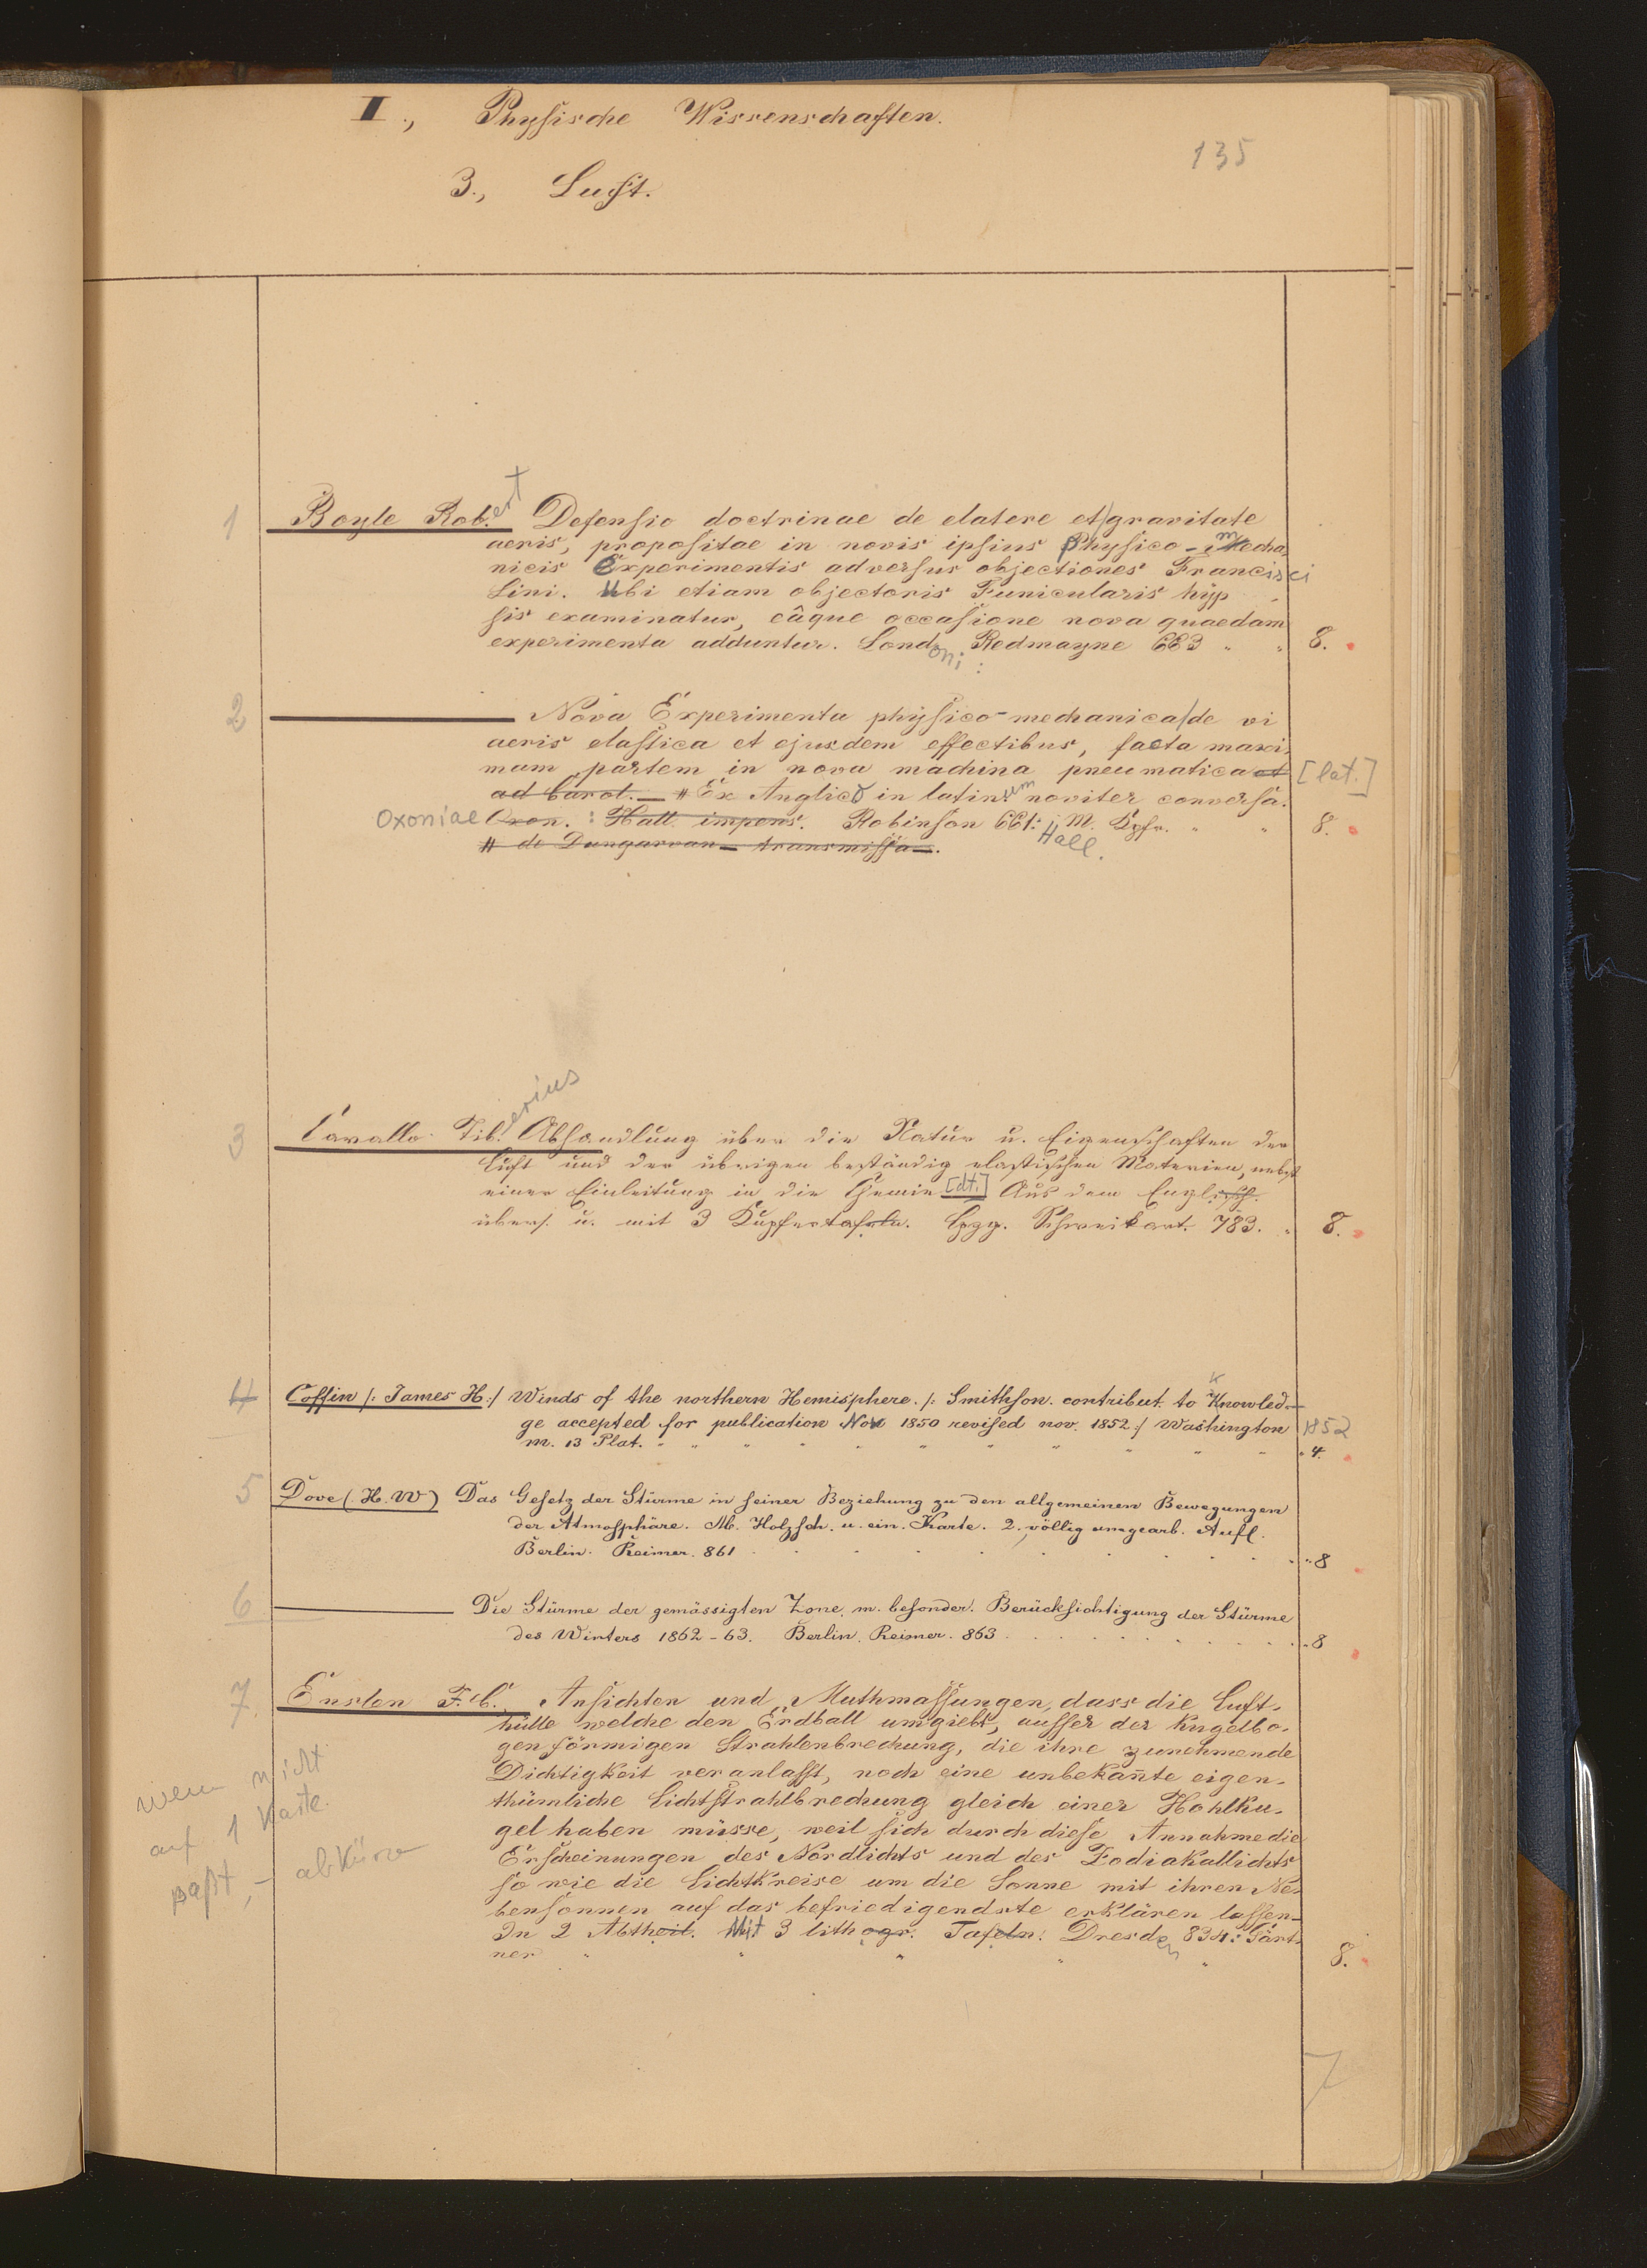 I., Physische Wissenschaften.
135
3., Luft.
1 Boyle Rob.ert Defensio doctrinae de elatere et/gravitate
aeris, propositae in novis ipsius Physico-mMecha,
nicis Experimentis adversus objectiones Francisci
Lini. Ubi etiam objectoris Funicularis hyp
sis examinatur, eâque occasione nova quaedam
experimenta adduntur. Londoni: Redmayne 663 " " 8.
2 ——— Nova Experimenta physico-mechanica/de vi
aeris elastica et ejusdem effectibus, facta maxi,
mam partem in nova machina pneumatica et [lat.]
ad Carol. — # Ex Anglico in latin.um noviter conversa.
Oxoniae Oxon. : Hall impens. Robinson 661: j M. Kpfr. " " 8.
Hall.
# de Dungarvan — transmissa —.
3 Cavallo Tib.erius Abhandlung über die Natur u. Eigenschaften der
Luft und der übrigen beständig elastischen Materien, nebst
einer Einleitung in die Chemie [dt.] Aus dem Englisch.
übers. u. mit 3 Kupfertafeln. Lpzg. Schweikart. 783. " 8.
4 Coffin /: James H:/ Winds of the northern Hemisphere. /: Smithson. contribut. to Knowled-
ge accepted for publication Nov 1850 revised nov. 1852:/ Washington 1852
m. 13 Plat. " " " " " " " " " " " 4.
5 Dove (H. W) Das Gesetz der Stürme in seiner Beziehung zu den allgemeinen Bewegungen
der Atmosphäre. M. Holzsch. u. ein. Karte. 2., völlig umgearb. Aufl.
Berlin. Reimer. 861 . . . . . . . . . " 8
6 ——— Die Stürme der gemässigten Zone, m. besonder. Berücksichtigung der Stürme
des Winters 1862-63. Berlin, Reimer. 863 . . . . . . . . " 8
7. Enslen F. C. Ansichten und Muthmassungen, dass die Luft-
hülle welche den Erdball umgiebt, ausser der Kugelbo-
genförmigen Strahlenbrechung, die ihre zunehmende
Dichtigkeit veranlasst, noch eine unbekañte eigen-
thümliche Lichtstrahlbrechung gleich einer Hohlku-
gel haben müsse, weil sich durch diese Annahme die
Erscheinungen des Nordlichts und des Zodiakallichts
so wie die Lichtkreise um die Sonne mit ihren Ne-
bensonnen auf das befriedigendste erklären lassen-
In 2 Abtheil. Mit 3 lithogr. Tafeln. Dresden 834: Gärt-
ner " " " " " 8.
wenn nicht
auf 1 Karte
paßt, – abkürzen
7